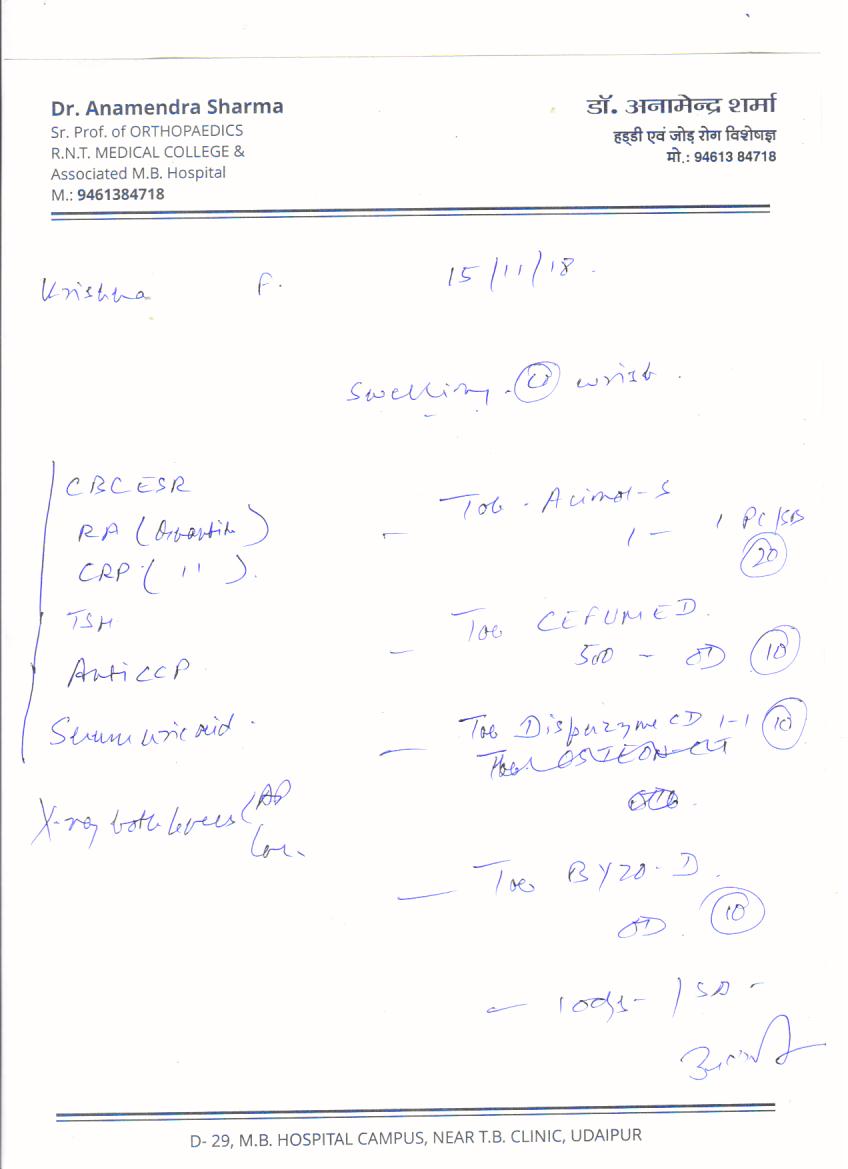 Dr. Anamendra Sharma
Sr. Prof. of ORTHOPAEDICS
R.N.T. MEDICAL COLLEGE &
Associated M.B. Hospital
M.: 9461384718
डॉ. अनामेन्द्र शर्मा
हड्डी एवं जोड़ रोग विशेषज्ञ
मो.: 94613 84718
Krishna F. 15/11/18.
Swelling. wrist.
CBC ESR
RA (
CRP ( 11 ).
TSH
Anti CCP
Serum uric acid.
X-ray both (AP
- Tab - Acimol-S
1 - 1 PC/
20
- Tab CEFUMED.
500 - OD 10
- Tab Disperzyme CD 1-1 10
- Tab BYZO-D.
OD. 10
- 10
D- 29, M.B. HOSPITAL CAMPUS, NEAR T.B. CLINIC, UDAIPUR